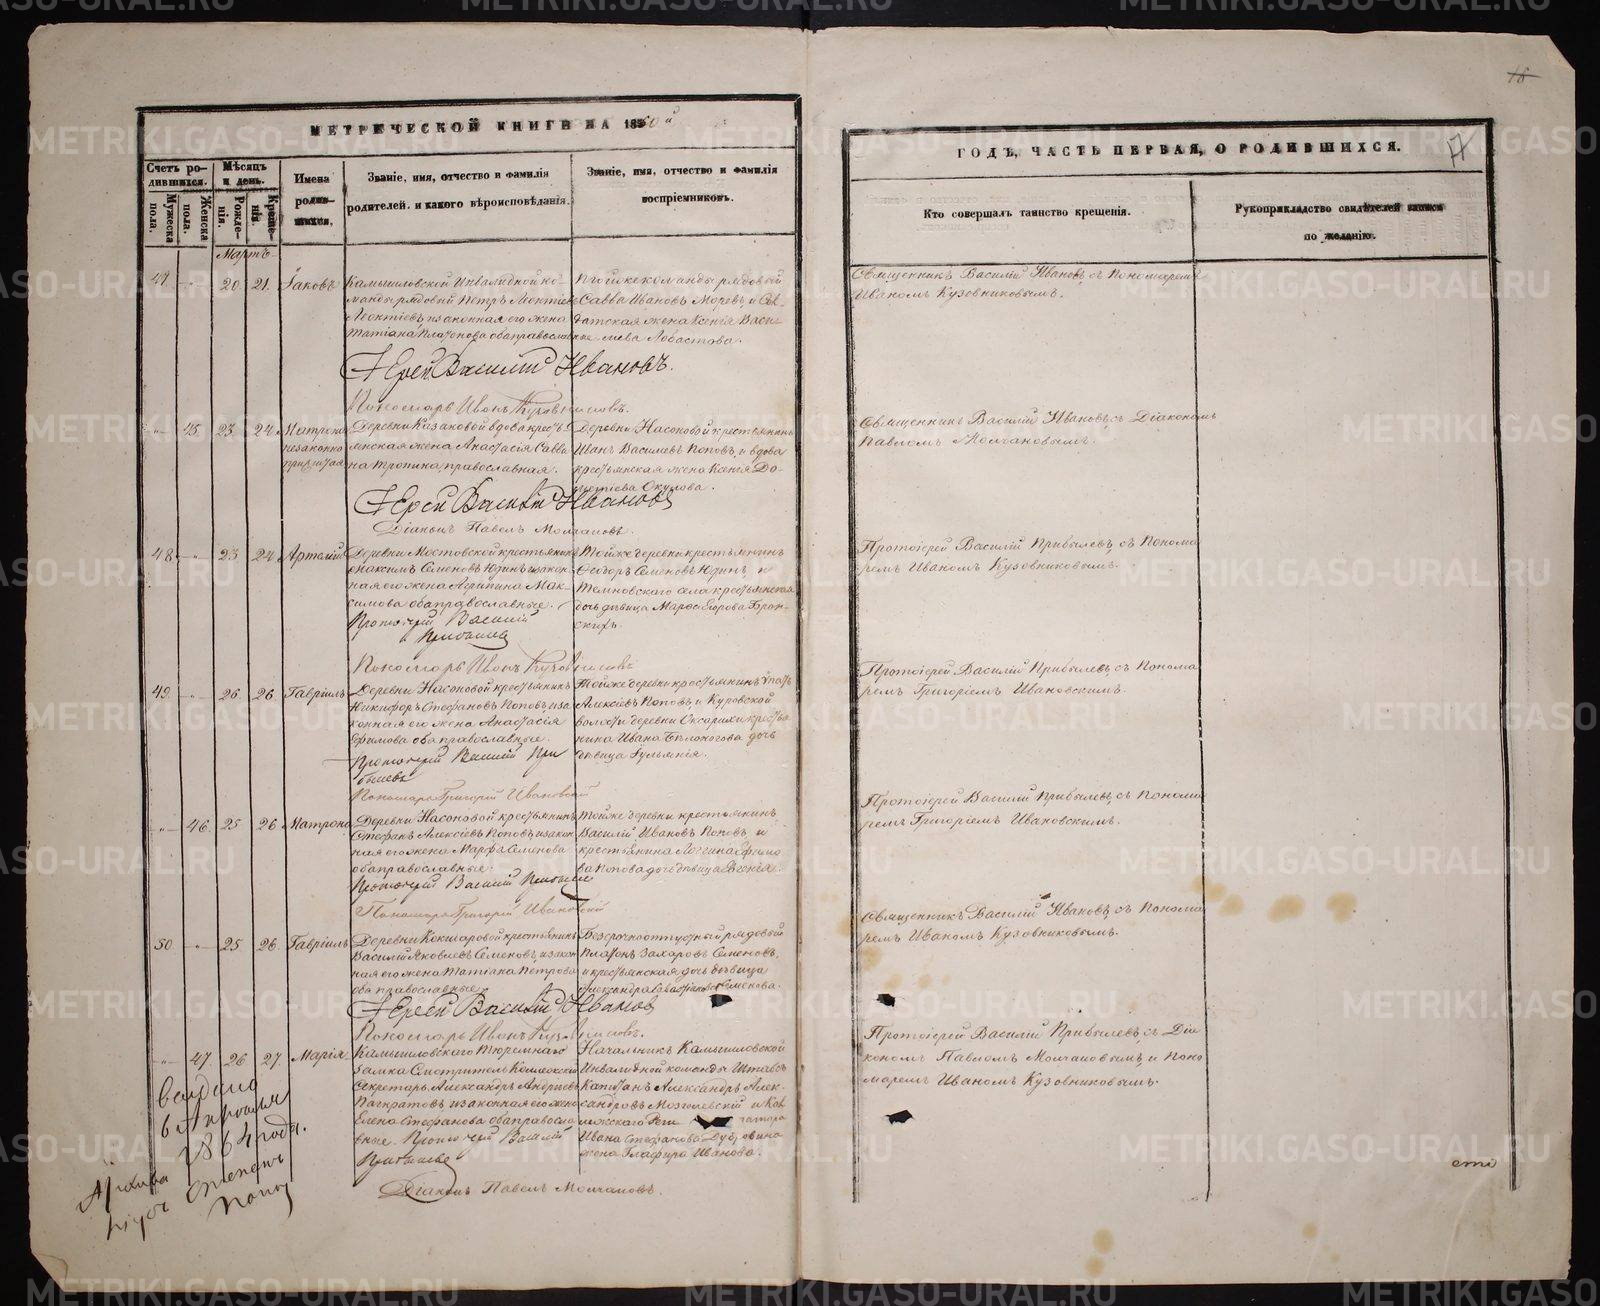 МЕТРИЧЕСКОЙ КНИГИ НА 1860й
ГОДЪ, ЧАСТЬ ПЕРВАЯ, О РОДИВШИХСЯ.
16
17
Счетъ родившихся.
Мужеска пола.
Женска пола.
Мѣсяцъ и день.
Рожденія.
Крещенія.
Имена родившихся.
Званіе, имя, отчество и фамилія
родителей, и какого вѣроисповѣданія.
Званіе, имя, отчество и фамилія
воспріемниковъ.
Кто совершалъ таинство крещенія.
Рукоприкладство свидѣтелей записи
по желанію.
Мартъ
20 21. Іаковъ
Камышловской Инвалидной ко-
манды рядовой Петръ Леонтіевъ
Леонтіевъ и законная его жена
Татіана Платонова оба православные
Той же команды рядовой
Савва Ивановъ и Сол-
датская жена Ксенія Васи-
лиева Лобастова.
Священникъ Василій Ивановъ, съ Пономаремъ
Иваномъ Кузовниковымъ.
Іерей Василій Ивановъ.
Пономарь Иванъ Кузовниковъ.
45. 23 24 Матрона
незаконно
прижитая
Деревни Казаковой вдова кресть-
янская жена Анастасія Савви-
на Тропина, православная.
Деревни Насоновой крестьянинъ
Иванъ Василіевъ Поповъ и вдова
крестьянская жена Ксенія
Окулова.
Священникъ Василій Ивановъ съ Діакономъ
Павломъ Молчановымъ.
Іерей Василій Ивановъ
Діаконъ Павелъ Молчановъ.
48 23 24 Артемій
Деревни Мостовской крестьянинъ
Максимъ Семеновъ Юдинъ и закон-
ная его жена Агрипина Мак-
симова оба православные.
Той же деревни крестьянинъ
Ѳеодоръ Семеновъ Юдинъ и
Темновскаго села крестьянская
дочь дѣвица Егорова
Протоіерей Василій Прибылевъ, съ Понома-
ремъ Иваномъ Кузовниковымъ.
Протоіерей Василій
Прибылевъ
Пономарь Иванъ Кузовниковъ
49 26 26 Гавріилъ
Деревни Насоновой крестьянинъ
Никифоръ Стефановъ Поповъ и за-
конная его жена Анастасія
Ефимова оба православные.
Той же деревни крестьянинъ
Алексіевъ Поповъ, и Куровской
волости деревни крестья-
нина Ивана Бѣлоногова дочь
дѣвица Іульянія.
Протоіерей Василій Прибылевъ, съ Понома-
ремъ Григоріемъ Ивановскимъ.
Протоіерей Василій При-
былевъ
Пономарь Григорій Ивановскій
46. 25 26 Матрона
Деревни Насоновой крестьянинъ
Стефанъ Алексіевъ Поповъ и закон-
ная его жена Марфа Семенова
оба православные.
Той же деревни крестьянинъ
Василій Ивановъ Поповъ, и
крестьянина Логгина Ефимо-
ва Попова дочь дѣвица
Протоіерей Василій Прибылевъ, съ Понома-
ремъ Григоріемъ Ивановскимъ.
Протоіерей Василій Прибылевъ
Пономарь Григорій Ивановскій
50 25 26. Гавріилъ
Деревни Кокшаровой крестьянинъ
Василій Яковлевъ Семеновъ, и закон-
ная его жена Татіана Петрова
оба православные
Безсрочноотпускный рядовый
Платонъ Захаровъ Семеновъ,
и крестьянская дочь дѣвица
Александра Севастіанова Семенова.
Священникъ Василій Ивановъ, съ Понома-
ремъ Иваномъ Кузовниковымъ.
Іерей Василій Ивановъ
Пономарь Иванъ Кузовниковъ.
47. 26 27. Марія
Камышловскаго Тюремнаго
Замка Смотритель Коллежскій
Секретарь Александръ Андреевъ
Панкратовъ и законная его жена
Елена Стефанова оба православ-
ные. Протоіерей Василій
Прибылевъ
Начальникъ Камышловской
Инвалидной команды Штабсъ
Капитанъ Александръ Алек-
сандровъ и Кол-
лежскаго
Ивана Стефанова Дубровина
жена Глафира Иванова.
Протоіерей Василій Прибылевъ, съ Діа-
кономъ Павломъ Молчановымъ, и Поно-
маремъ Иваномъ Кузовниковымъ.
Діаконъ Павелъ Молчановъ.
1864 года.
METRIKI.GASO-URAL.RU